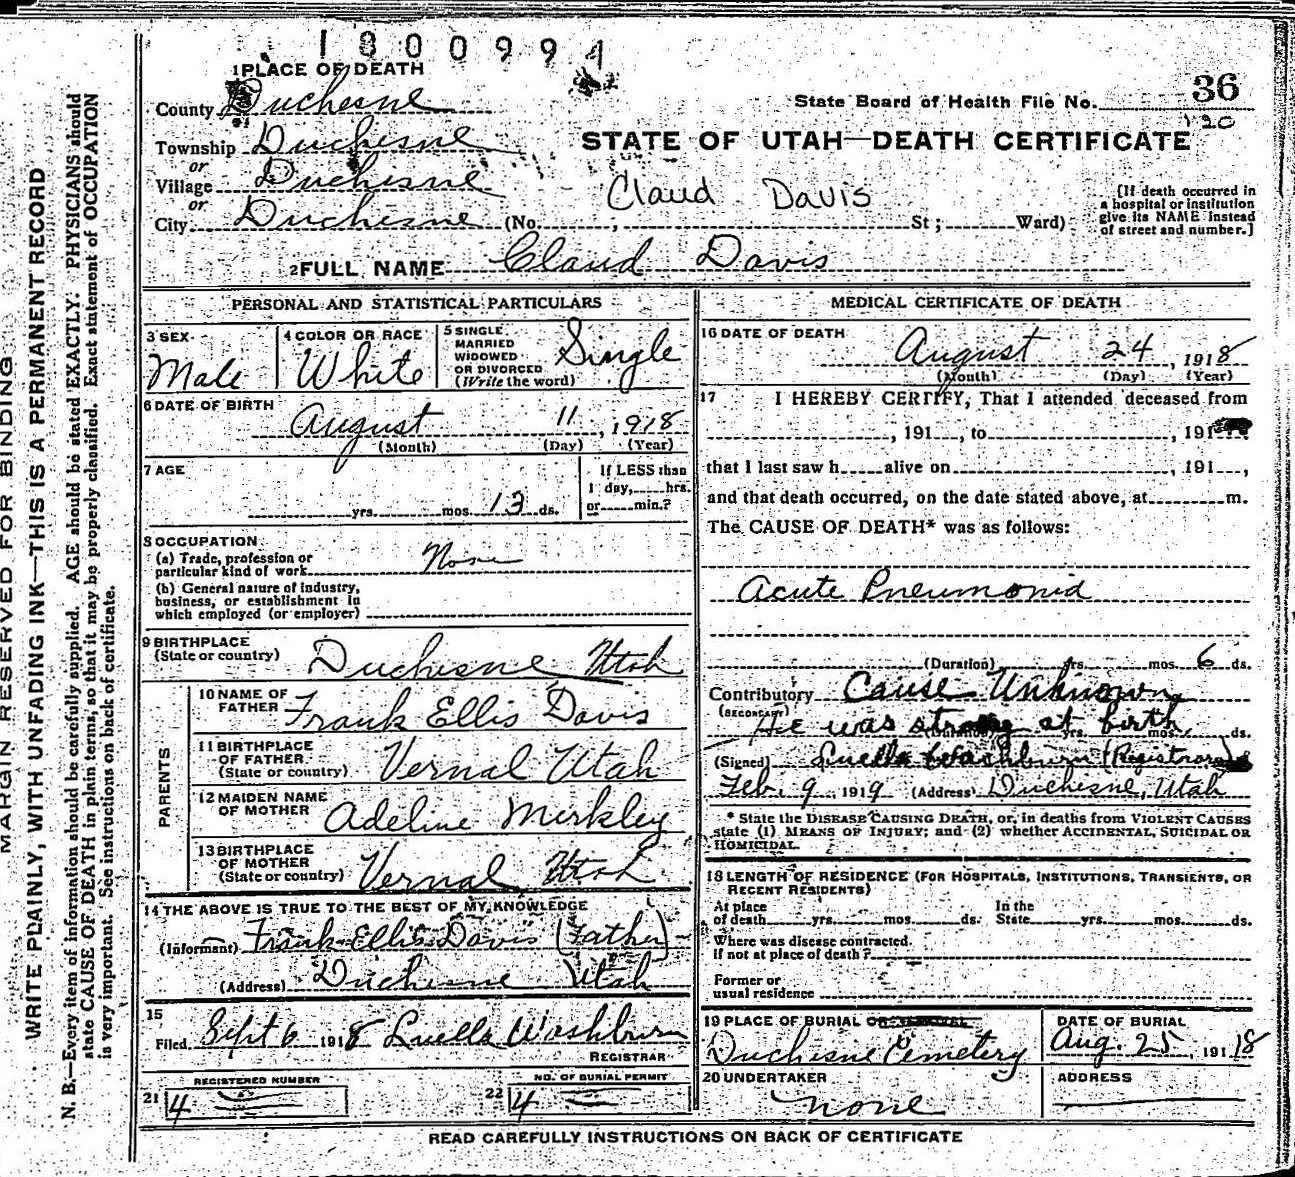 1800994
1 PLACE OF DEATH
County Duchesne
State Board of Health File No. 36
120
Township Duchesne
STATE OF UTAH—DEATH CERTIFICATE
or
Village Duchesne
or
Claud Davis
[If death occurred in a hospital or institution give its NAME instead of street and number.]
City Duchesne (No. , St; Ward)
2 FULL NAME Claud Davis
PERSONAL AND STATISTICAL PARTICULARS
3 SEX Male
4 COLOR OR RACE White
5 SINGLE MARRIED WIDOWED OR DIVORCED (Write the word) Single
6 DATE OF BIRTH
August 11, 1918
(Month) (Day) (Year)
7 AGE
yrs. mos. 13 ds.
If LESS than
1 day, hrs.
or min.?
8 OCCUPATION
(a) Trade, profession or
particular kind of work None
(b) General nature of industry,
business, or establishment in
which employed (or employer)
9 BIRTHPLACE
(State or country) Duchesne Utah
PARENTS
10 NAME OF
FATHER Frank Ellis Davis
11 BIRTHPLACE
OF FATHER
(State or country) Vernal Utah
12 MAIDEN NAME
OF MOTHER Adeline Merkley
13 BIRTHPLACE
OF MOTHER
(State or country) Vernal, Utah
14 THE ABOVE IS TRUE TO THE BEST OF MY KNOWLEDGE
(Informant) Frank Ellis Davis (Father)
(Address) Duchesne Utah
15
Filed Sept 6 1918 Luella Washburn
REGISTRAR
REGISTERED NUMBER
21 4
NO. OF BURIAL PERMIT
22 4
MEDICAL CERTIFICATE OF DEATH
16 DATE OF DEATH
August 24, 1918
(Month) (Day) (Year)
17 I HEREBY CERTIFY, That I attended deceased from
, 191 , to , 191
that I last saw h alive on , 191 ,
and that death occurred, on the date stated above, at m.
The CAUSE OF DEATH* was as follows:
Acute Pneumonia
(Duration) yrs. mos. 6 ds.
Contributory Cause Unknown
(SECONDARY) He was strong at birth,
(Duration) yrs. mos. ds.
(Signed) Luella Washburn (Registrar)
Feb. 9, 1919 (Address) Duchesne, Utah
* State the DISEASE CAUSING DEATH, or, in deaths from VIOLENT CAUSES
state (1) MEANS OF INJURY; and (2) whether ACCIDENTAL, SUICIDAL OR
HOMICIDAL.
18 LENGTH OF RESIDENCE (FOR HOSPITALS, INSTITUTIONS, TRANSIENTS, OR
RECENT RESIDENTS)
At place
of death yrs. mos. ds.
In the
State yrs. mos. ds.
Where was disease contracted,
If not at place of death?
Former or
usual residence
19 PLACE OF BURIAL OR REMOVAL
Duchesne Cemetery
DATE OF BURIAL
Aug. 25, 191 18
20 UNDERTAKER
none
ADDRESS
READ CAREFULLY INSTRUCTIONS ON BACK OF CERTIFICATE
MARGIN RESERVED FOR BINDING
WRITE PLAINLY, WITH UNFADING INK—THIS IS A PERMANENT RECORD
N. B.—Every item of information should be carefully supplied. AGE should be stated EXACTLY. PHYSICIANS should
state CAUSE OF DEATH in plain terms, so that it may be properly classified. Exact statement of OCCUPATION
is very important. See instructions on back of certificate.